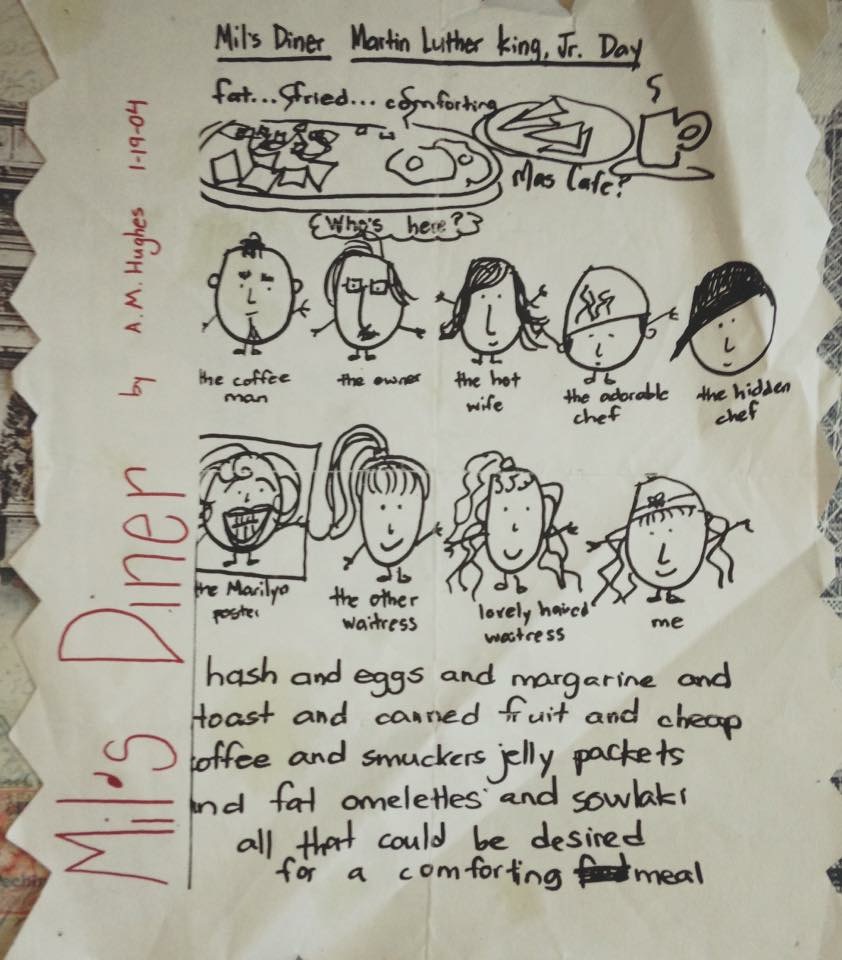 Mil's Diner Martin Luther King, Jr. Day
fat... fried... comforting
Mas Cafe?
Who's here?
the coffee man
the owner
the hot wife
the adorable chef
the hidden chef
the Marilyn poster
the other waitress
lovely haired waitress
me
hash and eggs and margarine and
toast and canned fruit and cheap
offee and smuckers jelly packets
nd fat omelettes and sowlaki
all that could be desired
for a comforting meal
Mil's Diner by A.M. Hughes 1-19-04